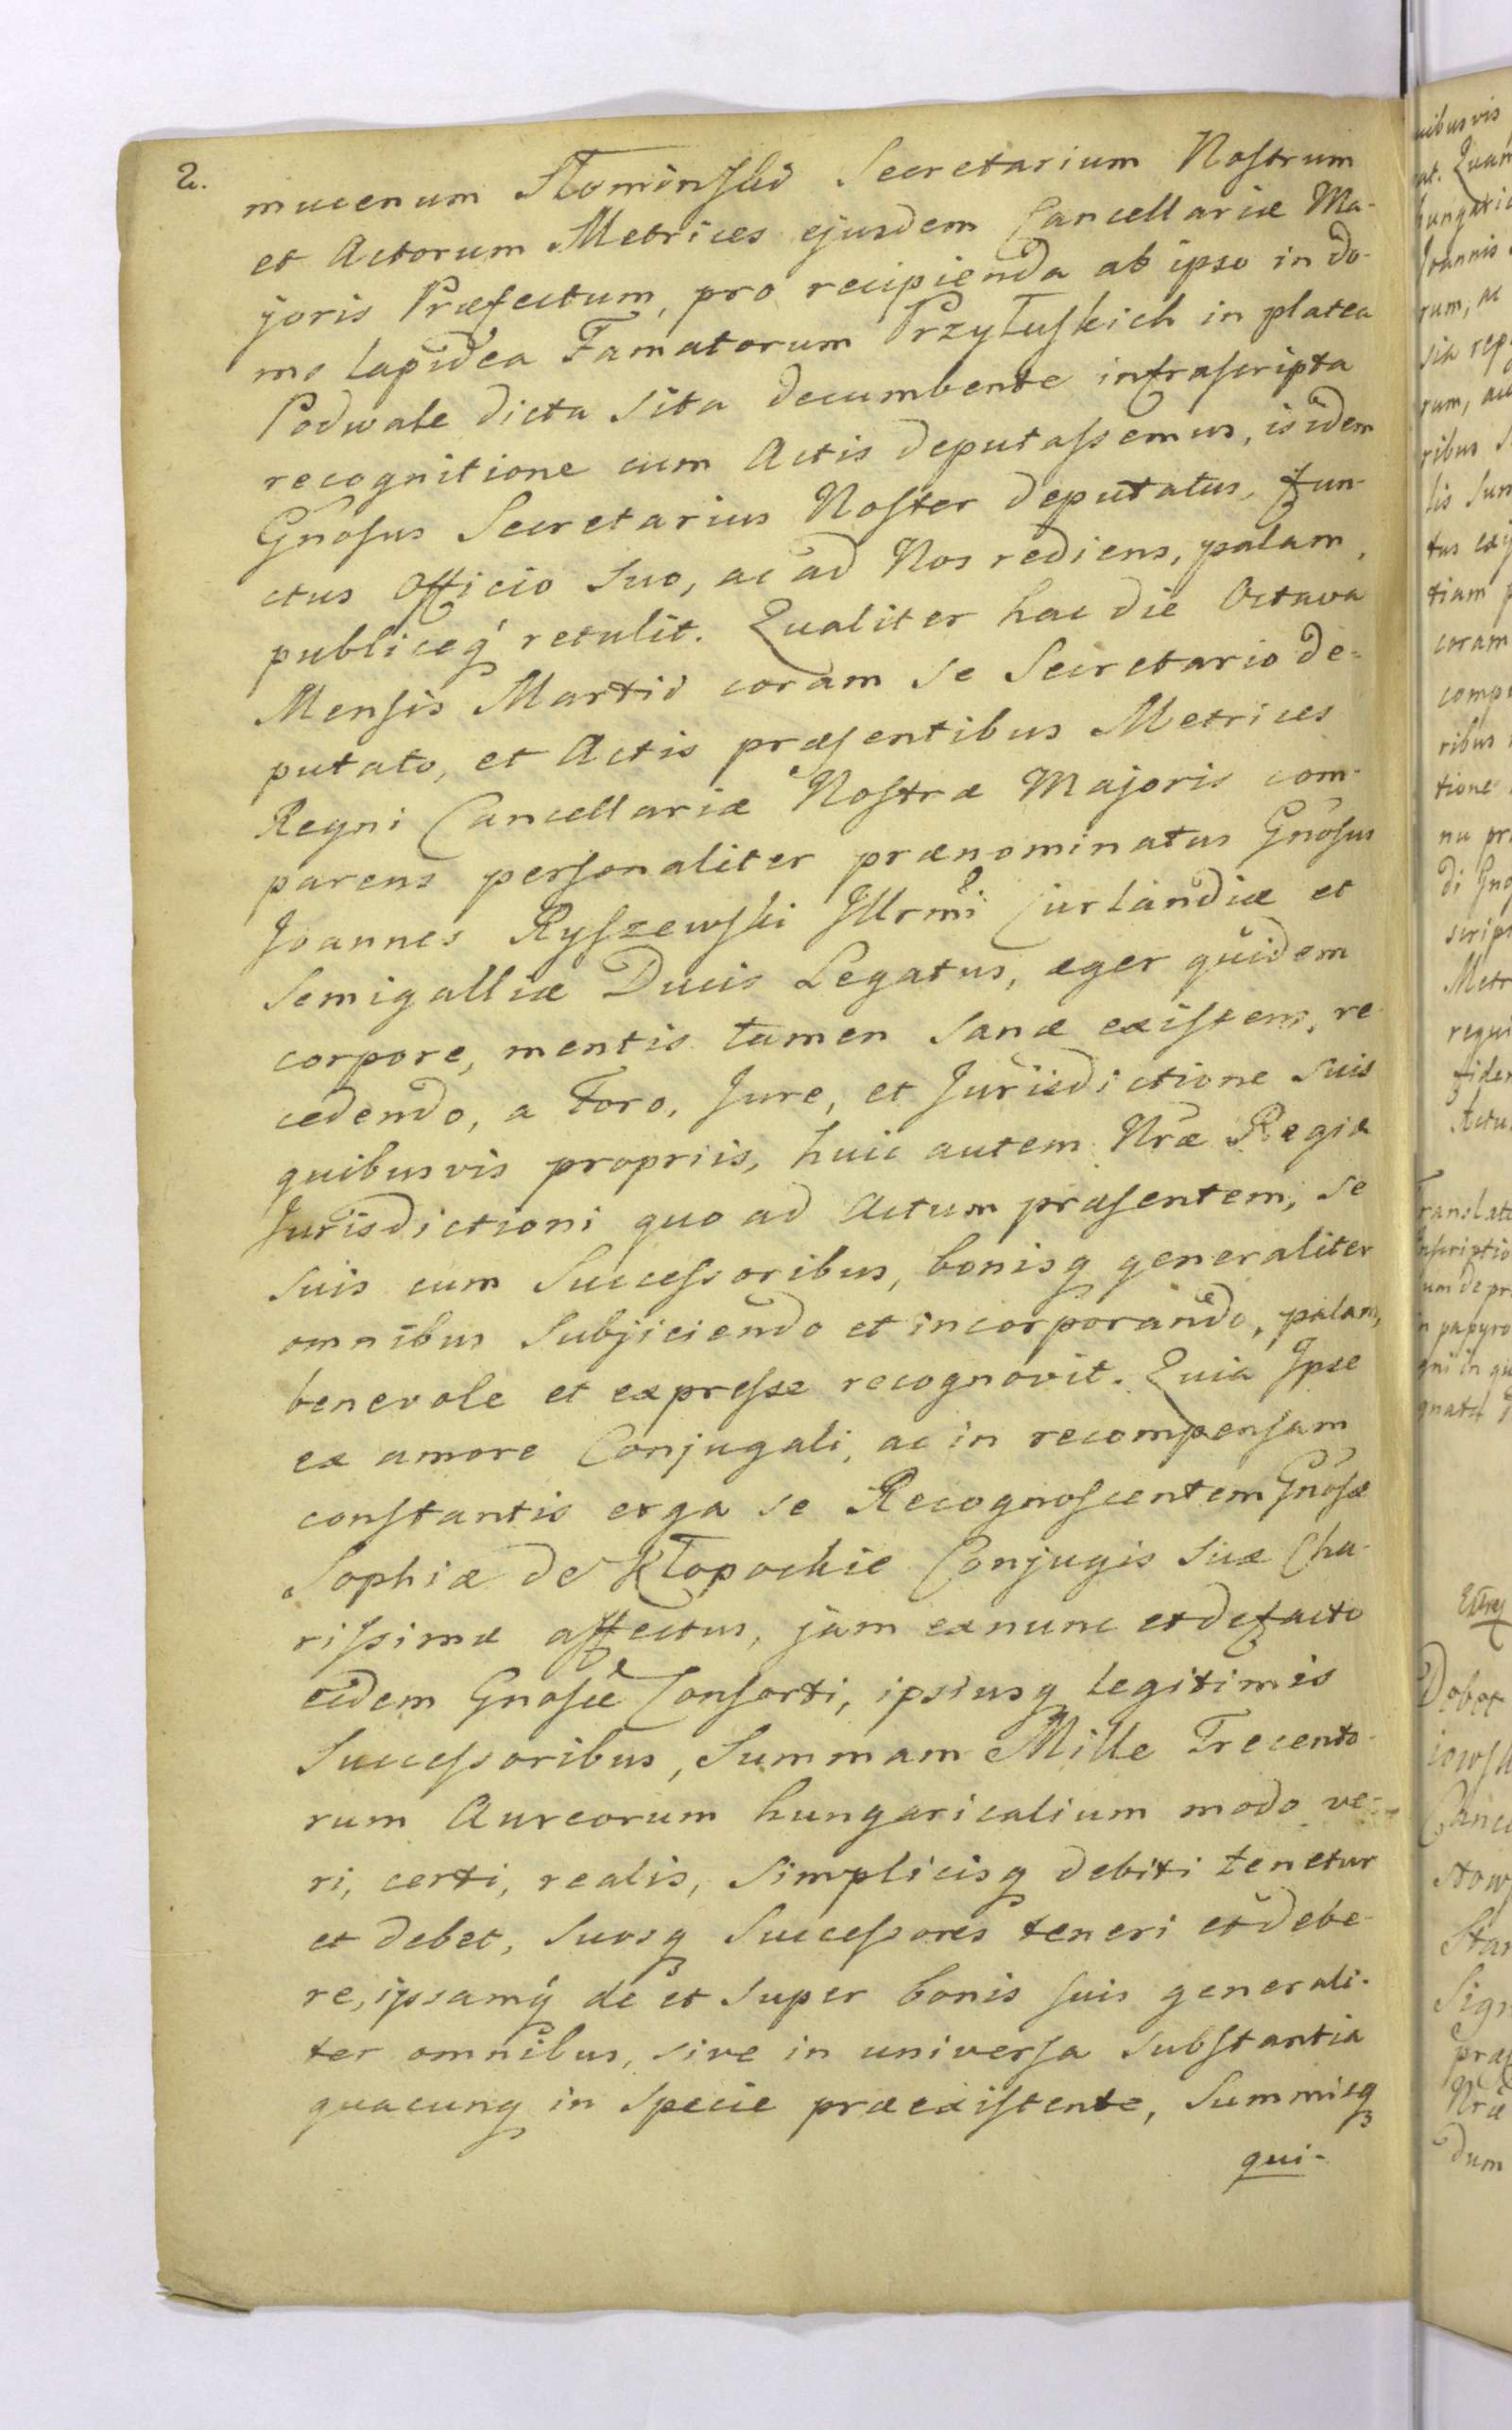 2.
mucenum Słominski Secretarium Nostrum
et Actorum Metrices ejusdem Cancellariæ Ma-
joris Præfectum, pro recipienda ab ipso in do-
mo lapidea Famatorum Przyłuskich in platea
Podwale dicta sita decumbente infrascripta
recognitione cum Actis deputassemus, is idem
Gnosus Secretarius Noster deputatus, fun-
ctus Officio suo, ac ad Nos rediens, palam,
publiceq́ retulit. Qualiter hac die Octava
Mensis Martii coram se Secretario de-
putato, et Actis præsentibus Metrices
Regni Cancellariæ Nostræ Majoris com-
parens personaliter prænominatus Gnosus
Joannes Ryszewski Illrmi Curlandiæ et
Semigalliæ Ducis Legatus, æger quidem
corpore, mentis tamen sanæ existens, re
cedendo, a Foro, Jure, et Jurisdictione suis
quibusvis propriis, huic autem Nræ Regiæ
Jurisdictioni quo ad Actum præsentem, se
suis cum Successoribus, bonisq generaliter
omnibus subjiciendo et incorporando, palam,
benevole et expresse recognovit. Quia Ipse
ex amore Conjugali, ac in recompensam
constantis erga se Recognoscentem Gnosæ
Sophiæ de Kłopockie Conjugis suæ Cha-
rissimæ affectus, jam exnunc et defacto
eidem Gnosæ Consorti, ipsiusq legitimis
Successoribus, Summam Mille Trecento-
rum Aureorum hungaricalium modo ve-
ri, certi, realis, simplicisq debiti tenetur
et debet, suosq Successores teneri et debe-
re, ipsamq́ de et super bonis suis generali-
ter omnibus, sive in universa substantia
quacunq in specie præexistente, Summisq
qui-